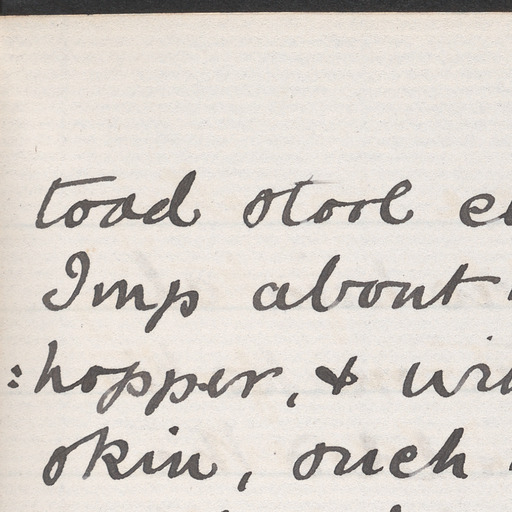 toad stool
Imp about
:hopper, &
skin, such